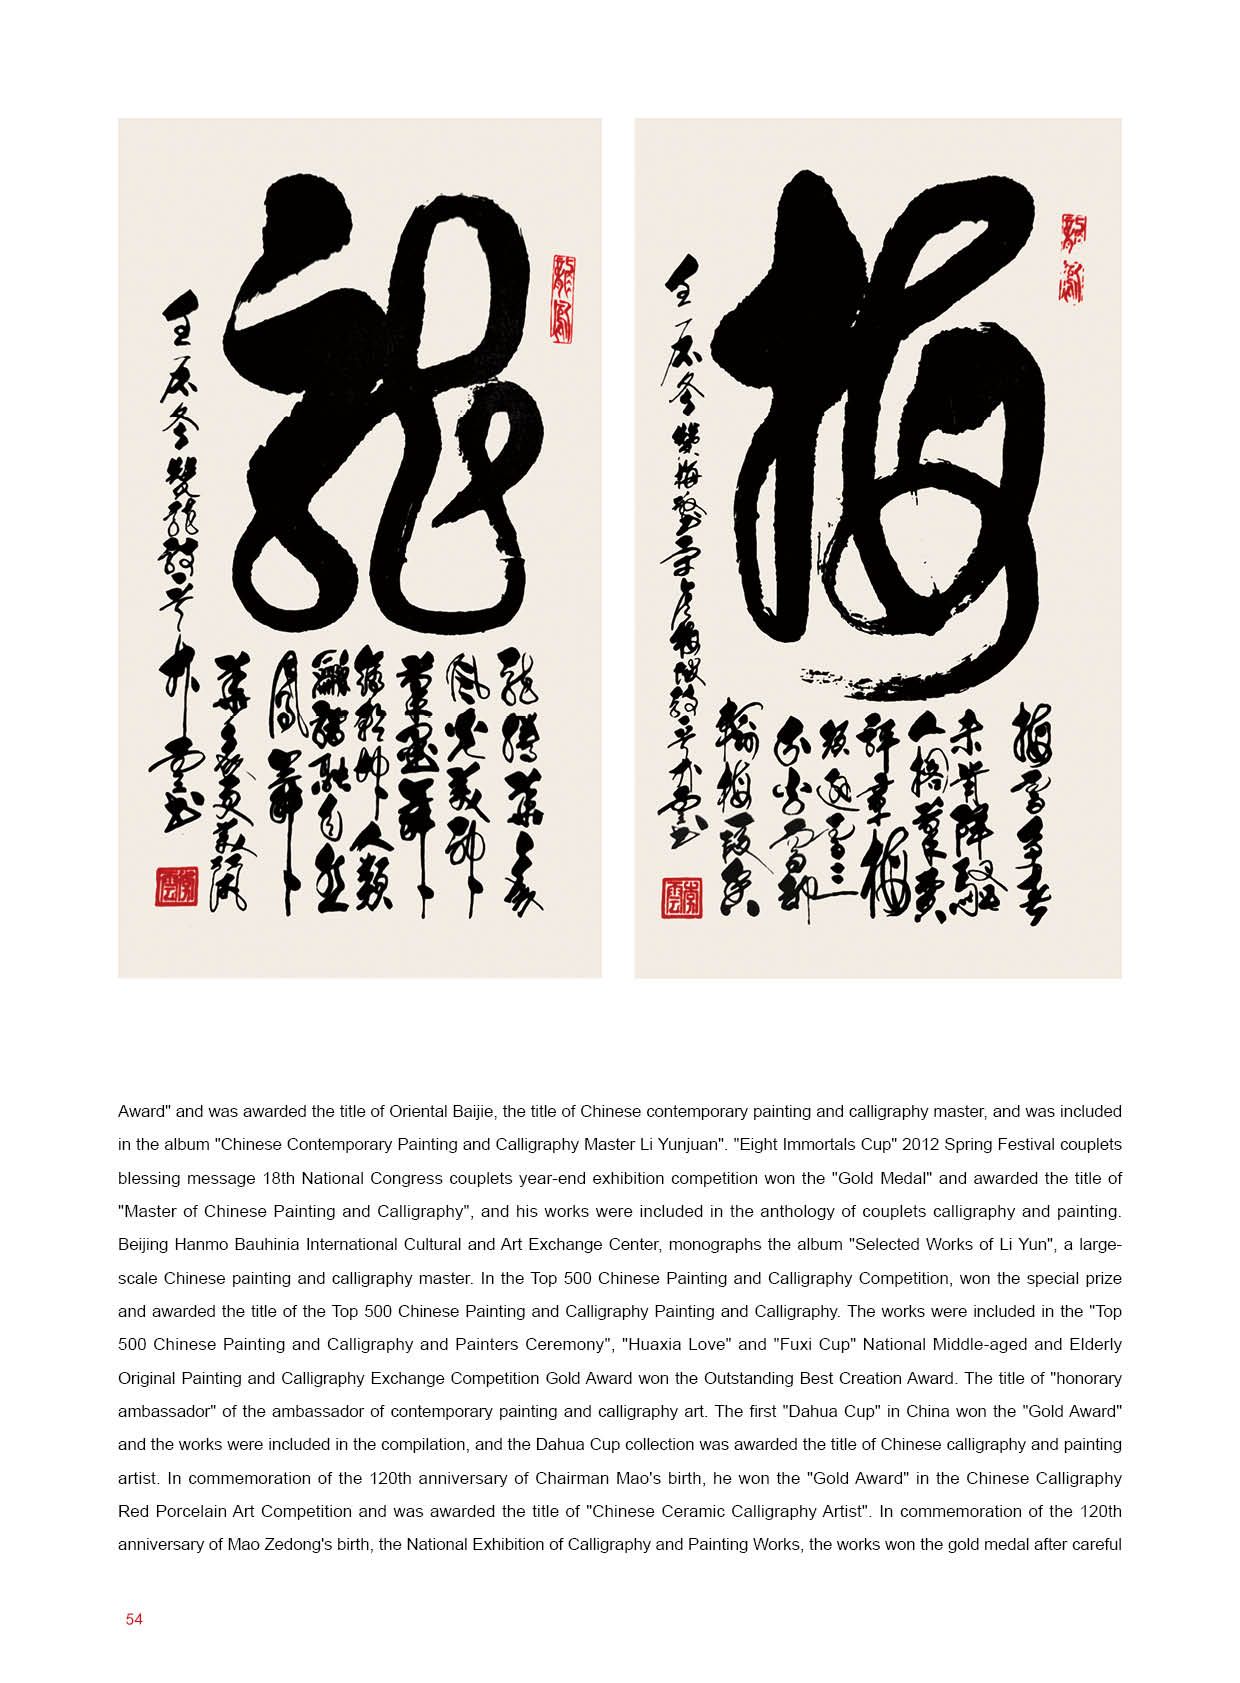 龍
龍騰華夏
風光美神
人類
融自然
鳳舞
壬辰冬
梅
梅雪爭春
未肯降騷
人擱筆費
評章梅
須遜雪三
分白雪卻
輸梅一段香
壬辰冬
Award" and was awarded the title of Oriental Baijie, the title of Chinese contemporary painting and calligraphy master, and was included
in the album "Chinese Contemporary Painting and Calligraphy Master Li Yunjuan". "Eight Immortals Cup" 2012 Spring Festival couplets
blessing message 18th National Congress couplets year-end exhibition competition won the "Gold Medal" and awarded the title of
"Master of Chinese Painting and Calligraphy", and his works were included in the anthology of couplets calligraphy and painting.
Beijing Hanmo Bauhinia International Cultural and Art Exchange Center, monographs the album "Selected Works of Li Yun", a large-
scale Chinese painting and calligraphy master. In the Top 500 Chinese Painting and Calligraphy Competition, won the special prize
and awarded the title of the Top 500 Chinese Painting and Calligraphy Painting and Calligraphy. The works were included in the "Top
500 Chinese Painting and Calligraphy and Painters Ceremony", "Huaxia Love" and "Fuxi Cup" National Middle-aged and Elderly
Original Painting and Calligraphy Exchange Competition Gold Award won the Outstanding Best Creation Award. The title of "honorary
ambassador" of the ambassador of contemporary painting and calligraphy art. The first "Dahua Cup" in China won the "Gold Award"
and the works were included in the compilation, and the Dahua Cup collection was awarded the title of Chinese calligraphy and painting
artist. In commemoration of the 120th anniversary of Chairman Mao's birth, he won the "Gold Award" in the Chinese Calligraphy
Red Porcelain Art Competition and was awarded the title of "Chinese Ceramic Calligraphy Artist". In commemoration of the 120th
anniversary of Mao Zedong's birth, the National Exhibition of Calligraphy and Painting Works, the works won the gold medal after careful
54